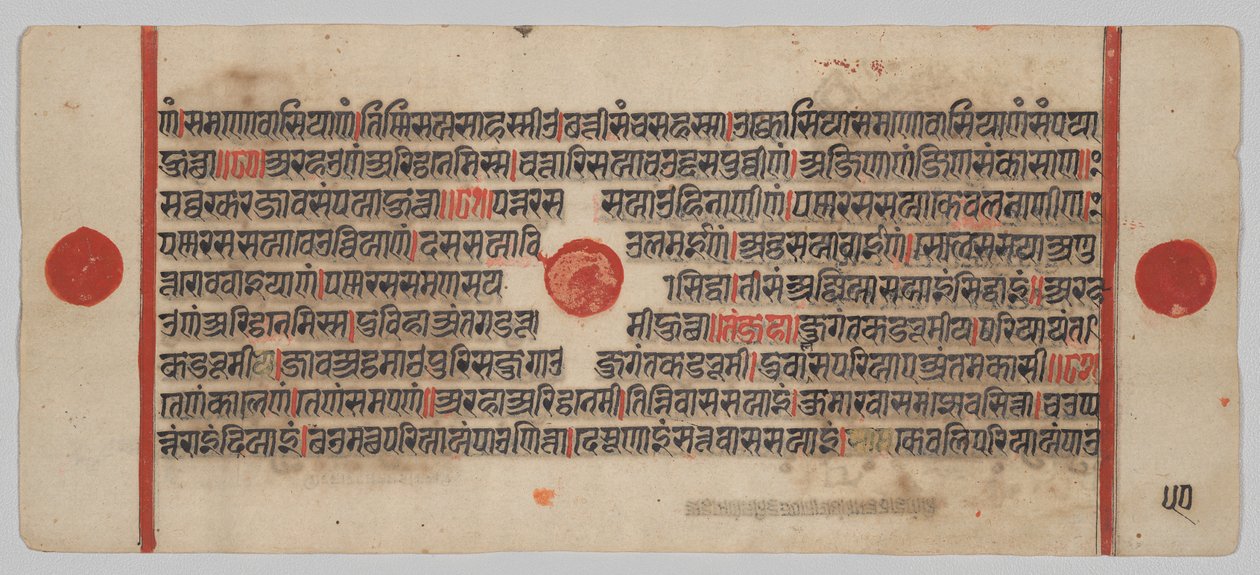 णं।समणोवासियाणं।तिन्निसयसाहस्सीउ।छत्तीसंचसहस्सा।उक्कोसियासमणोवासियाणंसंपया
हुत्था॥ अरहउणंअरिट्ठनेमिस्स।चत्तारिसयाचउद्दसपुव्वीणं।अजिणाणंजिणसंकासाणं॥
सव्वक्खरजावसंपयाहुत्था॥ पन्नरससयाउहिनाणीणं।पन्नरससयाकेवलनाणीणं।
पन्नरससयावेउव्वियाणं।दससयाविउलमईणं।अट्ठसयावाईणं।सोलससयाअणु
त्तरोववाईयाणं।पन्नरससमणसयासिद्धा।तीसंअज्जियासयाइंसिद्धाइं॥अरह
उणंअरिट्ठनेमिस्स।दुविहाअंतगडभूमीहुत्था॥तंजहा।जुगंतकडभूमीय।परियायंत
कडभूमीय।जावअट्ठमाउपुरिसजुगाउजुगंतकडभूमी।दुवासपरियाएअंतमकासी॥
तेणंकालेणं।तेणंसमएणं॥अरहाअरिट्ठनेमी।तिन्निवाससयाइं।कुमारवासमज्झेवसित्ता।चउप्प
न्नंराइंदियाइं।छउमत्थपरियायंपाउणित्ता।देसूणाइंसत्तवाससयाइं।केवलिपरियायंपाउ